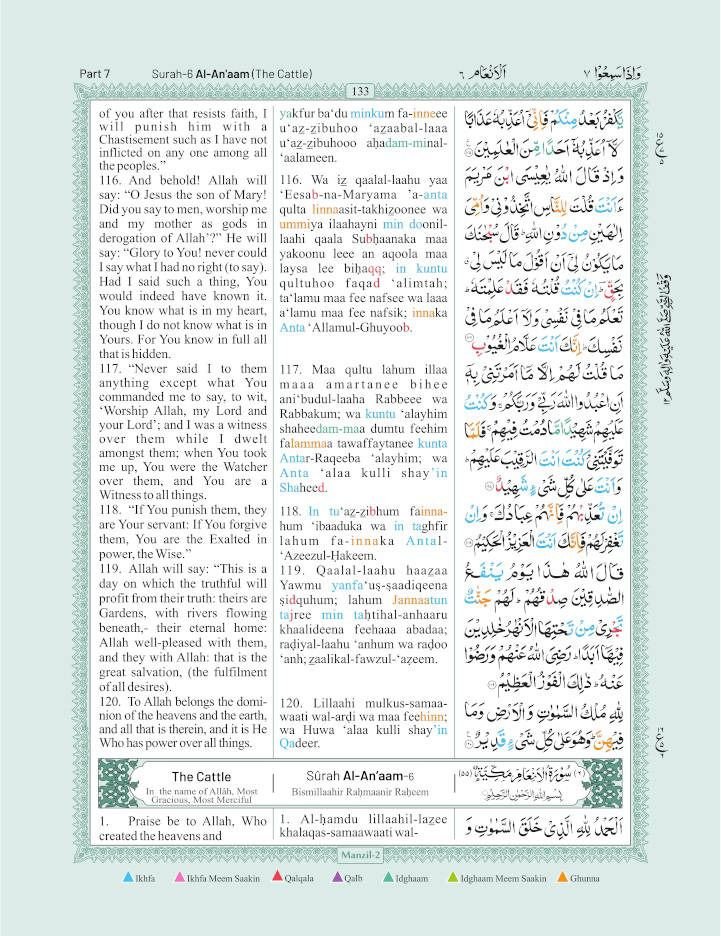 Part 7
Surah-6 Al-An'aam (The Cattle)
اَلْاَنْعَام ٦
وَاِذَاسَمِعُوْا ٧
133
of you after that resists faith, I
will punish him with a
Chastisement such as I have not
inflicted on any one among all
the peoples.”
116. And behold! Allah will
say: “O Jesus the son of Mary!
Did you say to men, worship me
and my mother as gods in
derogation of Allah’?” He will
say: “Glory to You! never could
I say what I had no right (to say).
Had I said such a thing, You
would indeed have known it.
You know what is in my heart,
though I do not know what is in
Yours. For You know in full all
that is hidden.
117. “Never said I to them
anything except what You
commanded me to say, to wit,
‘Worship Allah, my Lord and
your Lord’; and I was a witness
over them while I dwelt
amongst them; when You took
me up, You were the Watcher
over them, and You are a
Witness to all things.
118. “If You punish them, they
are Your servant: If You forgive
them, You are the Exalted in
power, the Wise.”
119. Allah will say: “This is a
day on which the truthful will
profit from their truth: theirs are
Gardens, with rivers flowing
beneath,- their eternal home:
Allah well-pleased with them,
and they with Allah: that is the
great salvation, (the fulfilment
of all desires).
120. To Allah belongs the domi-
nion of the heavens and the earth,
and all that is therein, and it is He
Who has power over all things.
yakfur ba‘du minkum fa-inneee
u‘az̤-z̤ibuhoo ‘az̤aabal-laaa
u‘az̤-z̤ibuhooo aḥadam-minal-
‘aalameen.
116. Wa iz̤ qaalal-laahu yaa
‘Eesab-na-Maryama ’a-anta
qulta linnaasit-takhizoonee wa
ummiya ilaahayni min doonil-
laahi qaala Subḥaanaka maa
yakoonu leee an aqoola maa
laysa lee biḥaqq; in kuntu
qultuhoo faqad ‘alimtah;
ta‘lamu maa fee nafsee wa laaa
a‘lamu maa fee nafsik; innaka
Anta ‘Allamul-Ghuyoob.
117. Maa qultu lahum illaa
maaa amartanee bihee
ani‘budul-laaha Rabbeee wa
Rabbakum; wa kuntu ‘alayhim
shaheedam-maa dumtu feehim
falammaa tawaffaytanee kunta
Antar-Raqeeba ‘alayhim; wa
Anta ‘alaa kulli shay’in
Shaheed.
118. In tu‘az̤-z̤ibhum fainna-
hum ‘ibaaduka wa in taghfir
lahum fa-innaka Antal-
‘Azeezul-Ḥakeem.
119. Qaalal-laahu haaz̤aa
Yawmu yanfa‘uṣ-ṣaadiqeena
ṣidquhum; lahum Jannaatun
tajree min taḥtihal-anhaaru
khaalideena feehaaa abadaa;
raḍiyal-laahu ‘anhum wa raḍoo
‘anh; z̤aalikal-fawzul-‘aẓeem.
120. Lillaahi mulkus-samaa-
waati wal-arḍi wa maa feehinn;
wa Huwa ‘alaa kulli shay’in
Qadeer.
يَّكْفُرْ بَعْدُ مِنْكُمْ فَاِنِّيْٓ اُعَذِّبُهٗ عَذَابًا
لَّآ اُعَذِّبُهٗٓ اَحَدًا مِّنَ الْعٰلَمِيْنَ
وَاِذْ قَالَ اللّٰهُ يٰعِيْسَى ابْنَ مَرْيَمَ
ءَاَنْتَ قُلْتَ لِلنَّاسِ اتَّخِذُوْنِيْ وَاُمِّيَ
اِلٰهَيْنِ مِنْ دُوْنِ اللّٰهِ ؕ قَالَ سُبْحٰنَكَ
مَا يَكُوْنُ لِيْٓ اَنْ اَقُوْلَ مَا لَيْسَ لِيْ
بِحَقٍّ ؕ اِنْ كُنْتُ قُلْتُهٗ فَقَدْ عَلِمْتَهٗ ؕ
تَعْلَمُ مَا فِيْ نَفْسِيْ وَلَآ اَعْلَمُ مَا فِيْ
نَفْسِكَ ؕ اِنَّكَ اَنْتَ عَلَّامُ الْغُيُوْبِ
مَا قُلْتُ لَهُمْ اِلَّا مَآ اَمَرْتَنِيْ بِهٖٓ
اَنِ اعْبُدُوا اللّٰهَ رَبِّيْ وَرَبَّكُمْ ۚ وَكُنْتُ
عَلَيْهِمْ شَهِيْدًا مَّا دُمْتُ فِيْهِمْ ۚ فَلَمَّا
تَوَفَّيْتَنِيْ كُنْتَ اَنْتَ الرَّقِيْبَ عَلَيْهِمْ ؕ
وَاَنْتَ عَلٰى كُلِّ شَيْءٍ شَهِيْدٌ
اِنْ تُعَذِّبْهُمْ فَاِنَّهُمْ عِبَادُكَ ۚ وَاِنْ
تَغْفِرْ لَهُمْ فَاِنَّكَ اَنْتَ الْعَزِيْزُ الْحَكِيْمُ
قَالَ اللّٰهُ هٰذَا يَوْمُ يَنْفَعُ
الصّٰدِقِيْنَ صِدْقُهُمْ ؕ لَهُمْ جَنّٰتٌ
تَجْرِيْ مِنْ تَحْتِهَا الْاَنْهٰرُ خٰلِدِيْنَ
فِيْهَآ اَبَدًا ؕ رَضِيَ اللّٰهُ عَنْهُمْ وَرَضُوْا
عَنْهُ ؕ ذٰلِكَ الْفَوْزُ الْعَظِيْمُ
لِلّٰهِ مُلْكُ السَّمٰوٰتِ وَالْاَرْضِ وَمَا
فِيْهِنَّ ؕ وَهُوَ عَلٰى كُلِّ شَيْءٍ قَدِيْرٌ
The Cattle
In the name of Allâh, Most
Gracious, Most Merciful
Sûrah Al-An’aam-6
Bismillaahir Raḥmaanir Raḥeem
(٦) سُوْرَةُ الْاَنْعَامِ مَكِّيَّةٌ (٥٥)
بِسْمِ اللّٰهِ الرَّحْمٰنِ الرَّحِيْمِ
1. Praise be to Allah, Who
created the heavens and
1. Al-ḥamdu lillaahil-laz̤ee
khalaqas-samaawaati wal-
اَلْحَمْدُ لِلّٰهِ الَّذِيْ خَلَقَ السَّمٰوٰتِ وَ
Manzil-2
Ikhfa
Ikhfa Meem Saakin
Qalqala
Qalb
Idghaam
Idghaam Meem Saakin
Ghunna